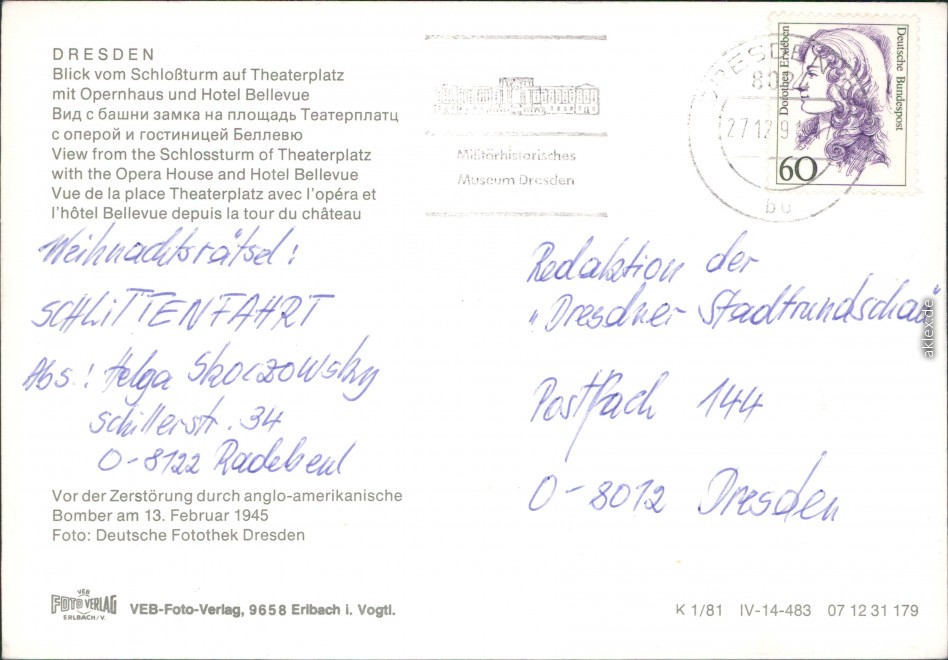 DRESDEN
Blick vom Schloßturm auf Theaterplatz
mit Opernhaus und Hotel Bellevue
Вид с башни замка на площадь Театерплатц
с оперой и гостиницей Беллевю
View from the Schlossturm of Theaterplatz
with the Opera House and Hotel Bellevue
Vue de la place Theaterplatz avec l'opéra et
l'hôtel Bellevue depuis la tour du château
Weihnachtsrätsel:
SCHLITTENFAHRT
Abs.: Helga Skoczowsky
Schillerstr. 34
O-8122 Radebeul
Vor der Zerstörung durch anglo-amerikanische
Bomber am 13. Februar 1945
Foto: Deutsche Fotothek Dresden
VEB
FOTO VERLAG
ERLBACH/V.
VEB-Foto-Verlag, 9658 Erlbach i. Vogtl.
Militärhistorisches
Museum Dresden
DRESDEN
27.12.9
bc
Dorothea Erxleben
Deutsche Bundespost
60
Redaktion der
"Dresdner Stadtrundschau"
Postfach 144
O-8012 Dresden
aklex.de
K 1/81 IV-14-483 07 12 31 179